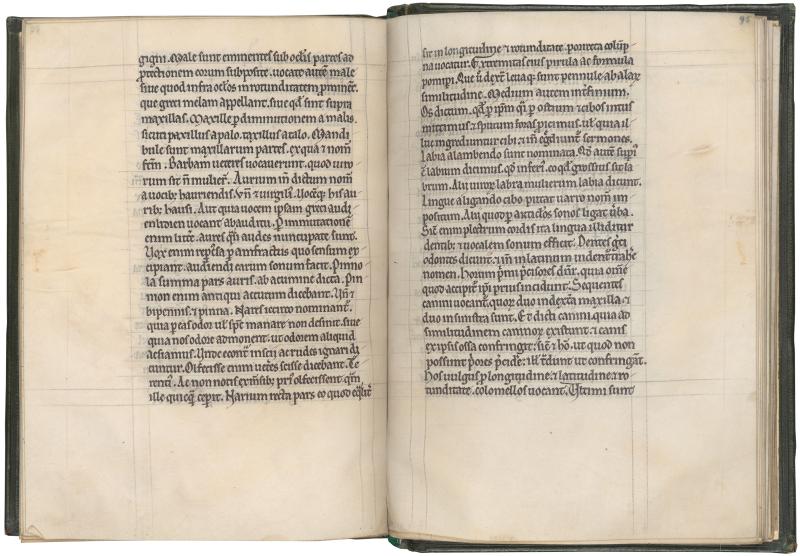 gigni. Male sunt eminentes sub oclis partes ad
ꝓtectionem eorum subposite. uocate autē male
siue quod infra oclos in rotunditatem ꝓminēt.
que greci melam appellant. siue qđ sunt supra
maxillas. Maxille ꝑ diminutionem a malis.
sicuti paxillus a palo. taxillus a talo. Mandi
bule sunt maxillarum partes. ex qua ⁊ nom̄
fc̄m. Barbam ueteres uocauerunt. quod uiro
rum sit ñ mulier̄. Aurium in dictum nom̄
a uocibꝫ hauriendis. Vñ ⁊ uirgili᷒. Uocēqꝫ his au
ribꝫ hausi. Aut quia uocem ipsam greci audi
enuocant ab auditu. Ꝑ immutationē
enim litt̄e. aures q̄si audes nuncupate sunt.
Uox enim repc̄ssa ꝑ amfractus quo sensum ex
cipiant. audiendi earum sonum facit. Pinno
la summa pars auris. ab acumine dicta. Pin
non enim antiqui acutum dicebant. Uñ ⁊
bipennis ⁊ pinna. Nares iccirco nominant᷑.
quia ꝑ eas odor ul̄ sp̄c manare non desinit. siue
quia nos odore admonent. ut odorem aliquid
ac sciamus. Unde econt̄ inscii ac rudes ignari di
cuntur. Olfecisse enim uet̄es scisse dicebant. Te
renti᷒. Ac non totis mēsibꝫ pri᷒ olfecissent q̄m
ille quicq̄ cepit. Narium recta pars eo quod eq̄lit̄
95
sit in longitudine ⁊ rotunditate. porrecta colūp
na uocatur. Extremitas eius pirula ac formula
pomi piri. Que ū dext̄ leuaqꝫ sunt pennule ab alaꝝ
similitudine. Medium autem int̄finium.
Os dictum. qđ ꝑ ip̄m q̄si ꝑ ostium ⁊ cibos intus
mittimus ⁊ sputum foras ꝓicimus. ul̄ quia il
luc ingrediuntur cibi ⁊ in̄ eg̅diunt᷑ sermones.
Labia a lambendo sunt nominata. Qđ autē supi᷒
ē labium dicimus. qđ inferi᷒. eo qđ grossius sit la
brum. Alii uiroꝝ labra mulierum labia dicunt.
Lingue a ligando cibo putat uarro nom̄ im
positum. Alii quod ꝑ articulos sonos ligat ūba.
Sic̄ enim plectrum cordis ita lingua illiditur
dentibꝫ ⁊ uocalem sonum efficit. Dentes gͨci
odontes dicunt. ⁊ in̄ in latinum indent᷑ trahē
nomen. Horum pͥmi pͨcisores dn̄r. quia om̄e
quod accipit᷑ ip̄i prius incidunt. Sequentes
canini uocant᷑. quoꝝ duo in dextra maxilla ⁊
duo in sinistra sunt. Et dicti canini. quia ad
similitudinem caninoꝝ existunt. ⁊ canis
ex ipsis ossa confringit. sic̄ ⁊ hō. ut quod non
possunt pͥores pͨcidē: ill᷑ t̄dunt ut confringāt.
Hos uulgus ꝓ longitudine ⁊ latitudine ⁊ ro
tunditate. colomellos uocant. Ultimi sunt